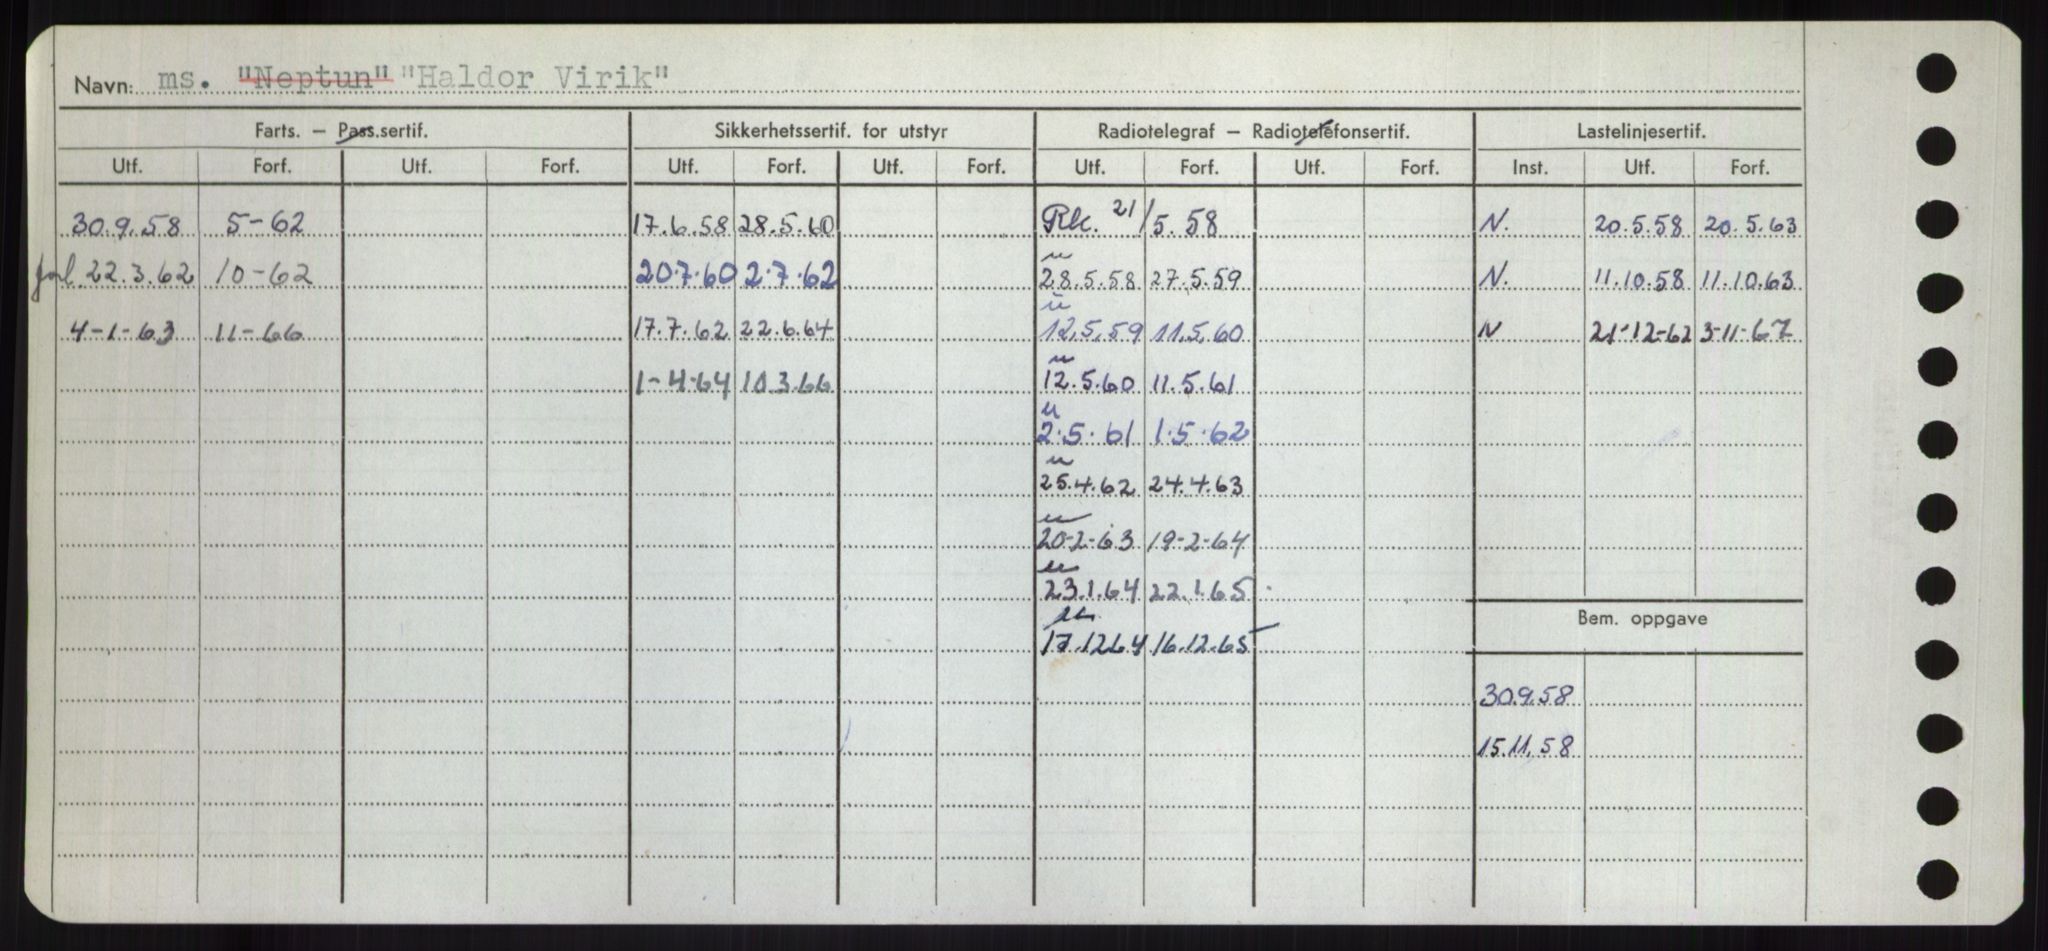 Navn: ms. "Neptun" "Haldor Virik"
Farts. – Pass.sertif. Sikkerhetssertif. for utstyr Radiotelegraf – Radiotelefonsertif. Lastelinjesertif.
Utf. Forf. Utf. Forf. Utf. Forf. Utf. Forf. Utf. Forf. Utf. Forf. Inst. Utf. Forf.
30.9.58 5-62 17.6.58 28.5.60 Rk. 21/5.58 N. 20.5.58 20.5.63
forl. 22.3.62 10-62 20.7.60 2.7.62 28.5.58 27.5.59 N. 11.10.58 11.10.63
4-1-63 11-66 17.7.62 22.6.64 12.5.59 11.5.60 N 21-12-62 3-11-67
1-4-64 10.3.66 12.5.60 11.5.61
2.5.61 1.5.62
25.4.62 24.4.63
20-2-63 19-2-64
23.1.64 22.1.65
Bem. oppgave
17.12.64 16.12.65
30.9.58
15.11.58